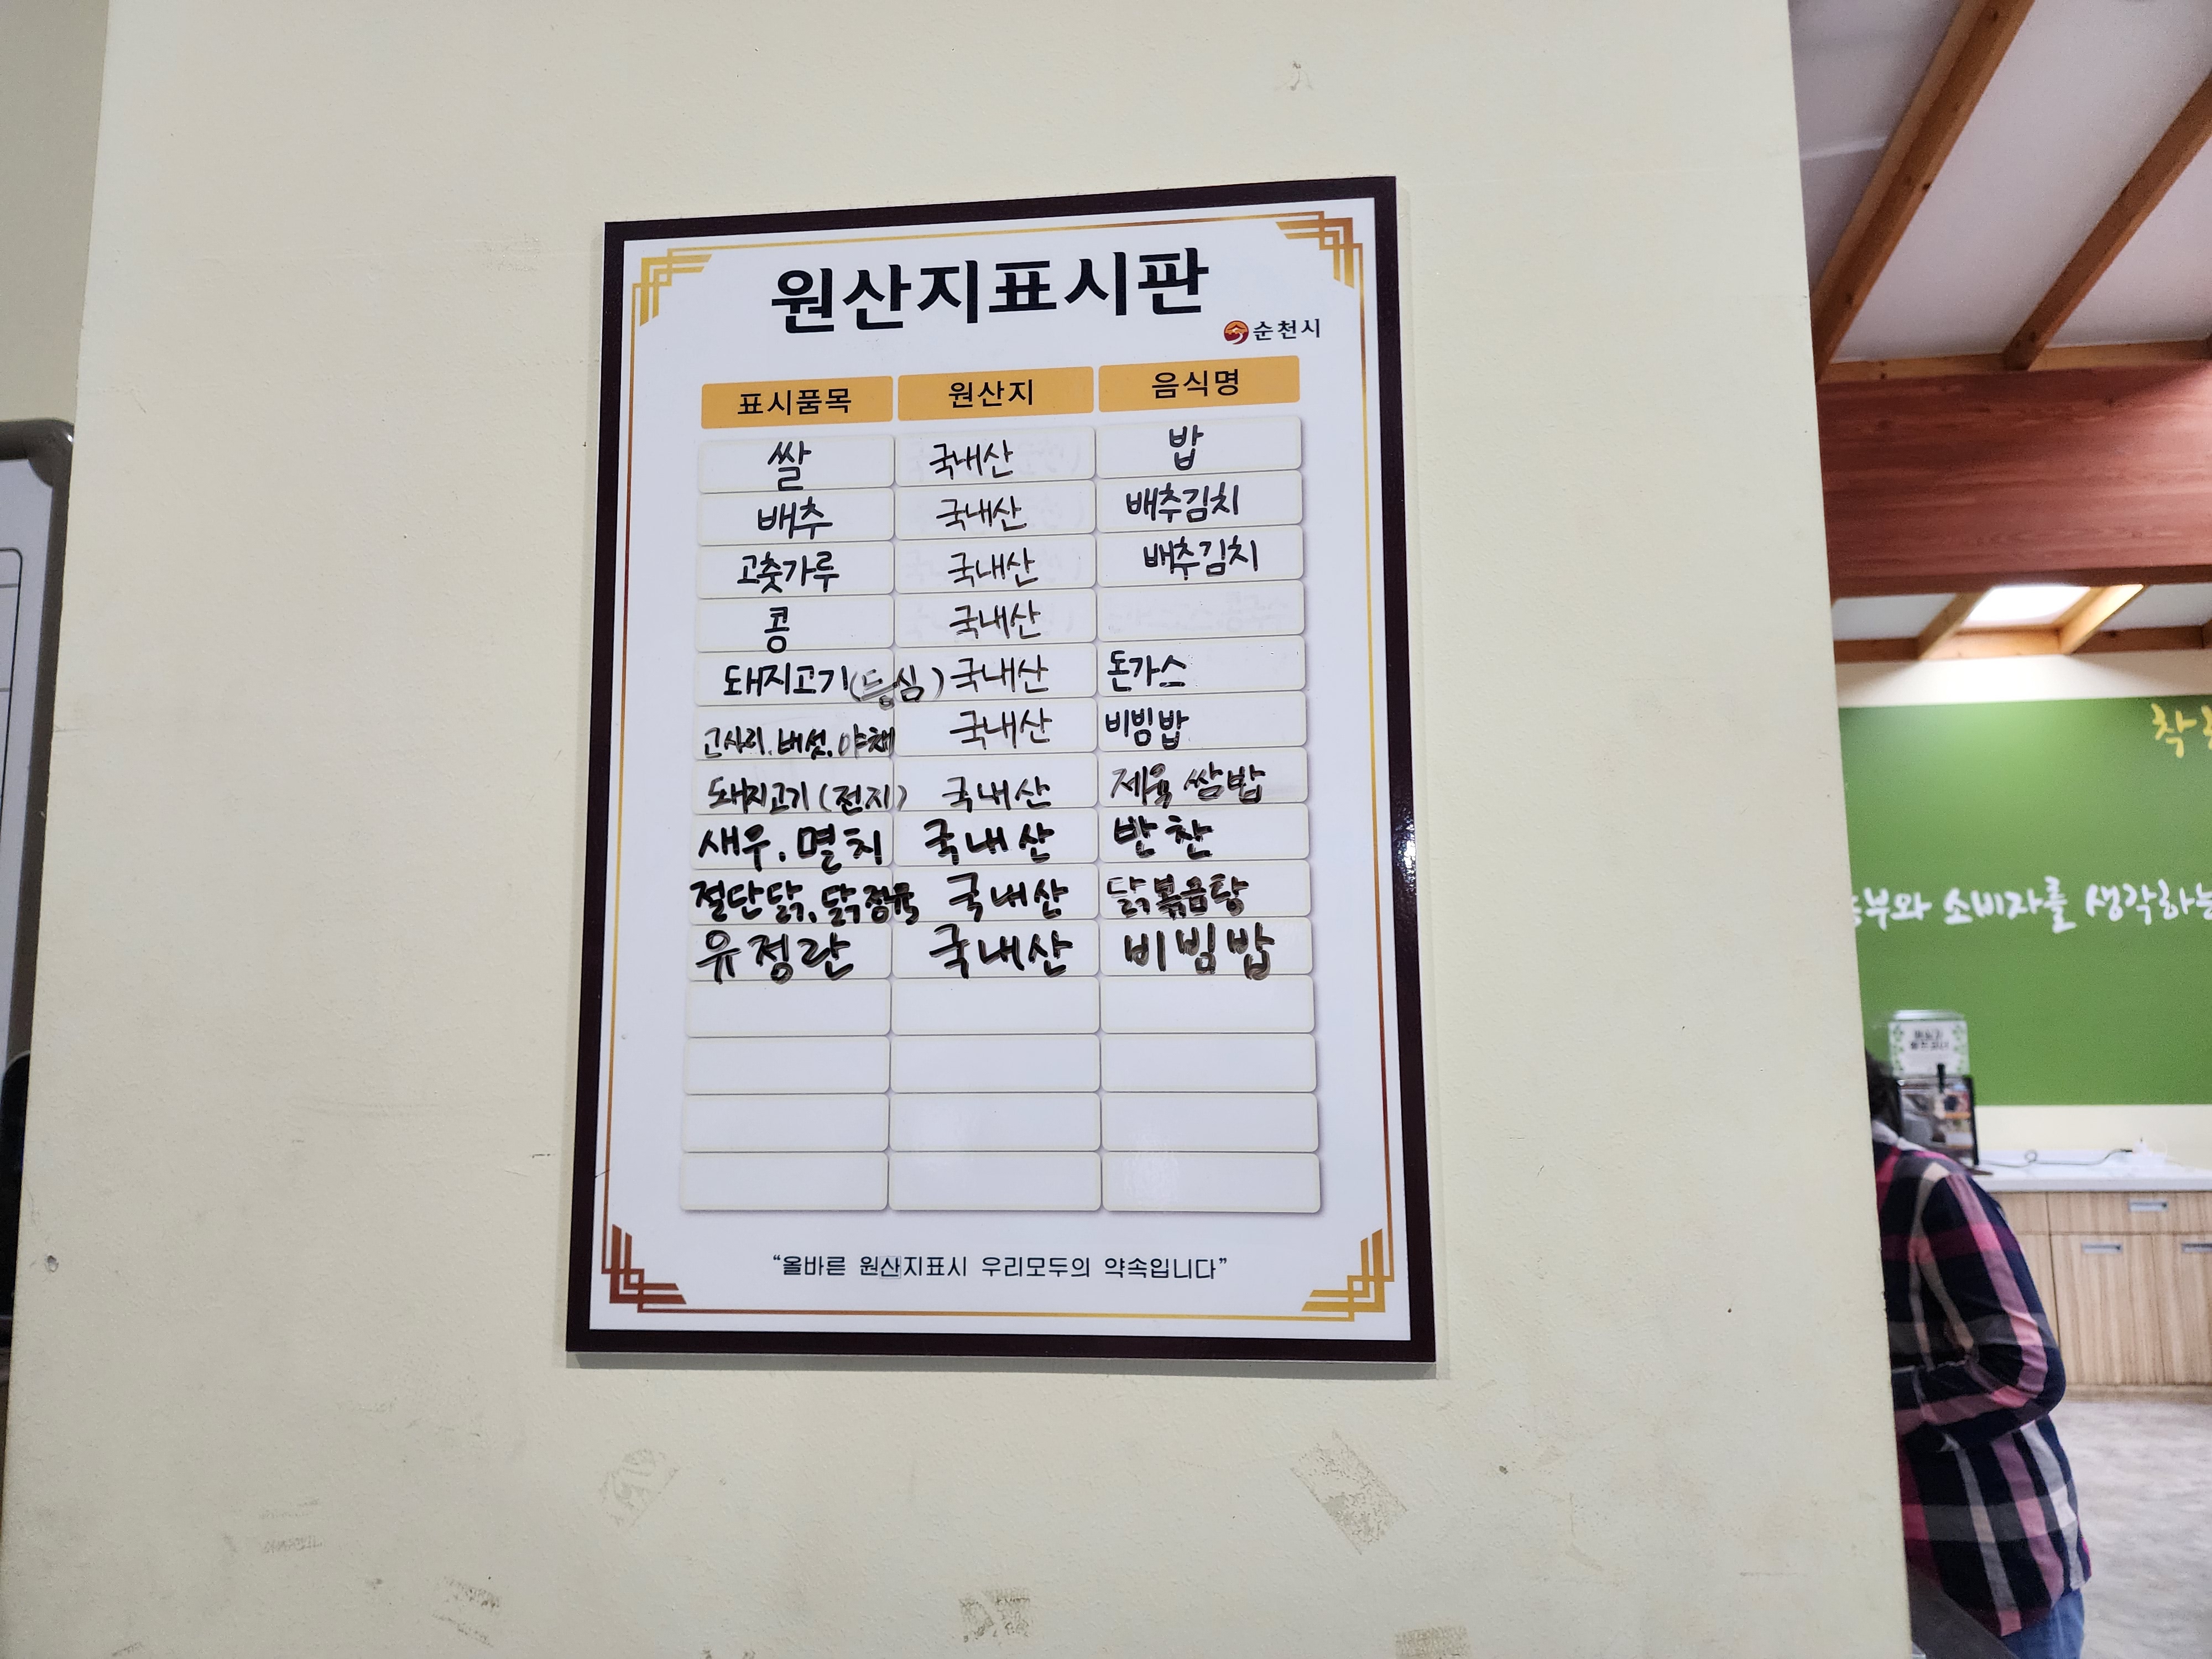 원산지표시판
순천시
표시품목 원산지 음식명
쌀 국내산 밥
배추 국내산 배추김치
고춧가루 국내산 배추김치
콩 국내산
돼지고기(등심) 국내산 돈가스
고사리.버섯.야채 국내산 비빔밥
돼지고기(전지) 국내산 제육쌈밥
새우.멸치 국내산 반찬
절단닭.닭정육 국내산 닭볶음탕
유정란 국내산 비빔밥
"올바른 원산지표시 우리모두의 약속입니다"
소비자를 생각하는